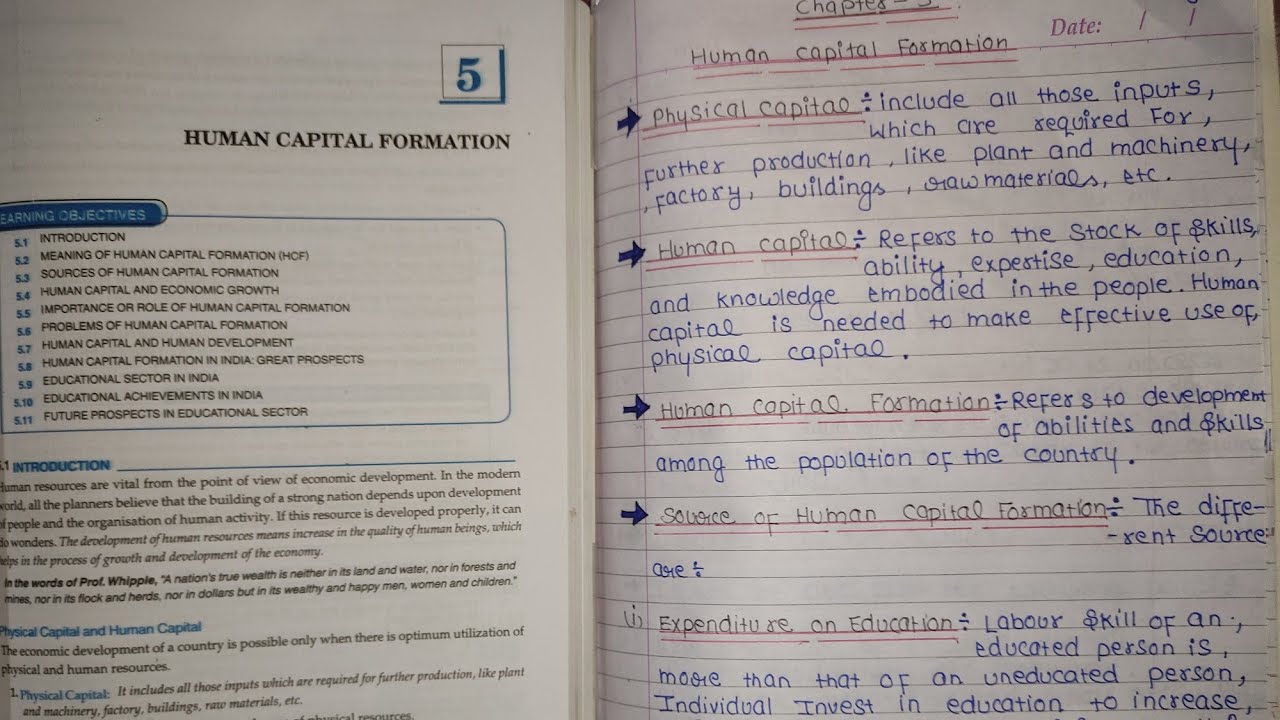 5
HUMAN CAPITAL FORMATION
EARNING OBJECTIVES
5.1 INTRODUCTION
5.2 MEANING OF HUMAN CAPITAL FORMATION (HCF)
5.3 SOURCES OF HUMAN CAPITAL FORMATION
5.4 HUMAN CAPITAL AND ECONOMIC GROWTH
5.5 IMPORTANCE OR ROLE OF HUMAN CAPITAL FORMATION
5.6 PROBLEMS OF HUMAN CAPITAL FORMATION
5.7 HUMAN CAPITAL AND HUMAN DEVELOPMENT
5.8 HUMAN CAPITAL FORMATION IN INDIA: GREAT PROSPECTS
5.9 EDUCATIONAL SECTOR IN INDIA
5.10 EDUCATIONAL ACHIEVEMENTS IN INDIA
5.11 FUTURE PROSPECTS IN EDUCATIONAL SECTOR
5.1 INTRODUCTION
Human resources are vital from the point of view of economic development. In the modern
world, all the planners believe that the building of a strong nation depends upon development
of people and the organisation of human activity. If this resource is developed properly, it can
do wonders. The development of human resources means increase in the quality of human beings, which
helps in the process of growth and development of the economy.
In the words of Prof. Whipple, "A nation's true wealth is neither in its land and water, nor in forests and
mines, nor in its flock and herds, nor in dollars but in its wealthy and happy men, women and children."
Physical Capital and Human Capital
The economic development of a country is possible only when there is optimum utilization of
physical and human resources.
1. Physical Capital: It includes all those inputs which are required for further production, like plant
and machinery, factory, buildings, raw materials, etc.
of physical resources.
Chapter - 5.
Date: / /
Human capital Formation
Physical capital ÷ include all those inputs,
which are required For,
further production, like plant and machinery,
factory, buildings, raw materials, etc.
Human capital ÷ Refers to the Stock of Skills,
ability, expertise, education,
and knowledge embodied in the people. Human
capital is needed to make effective use of,
physical capital.
Human capital. Formation ÷ Refers to development
of abilities and Skills
among the population of the country.
Source of Human Capital Formation ÷ The diffe-
-rent Source
are ÷
(i) Expenditure on Education ÷ Labour Skill of an,
educated person is,
more than that of an uneducated person,
Individual Invest in education to increase,